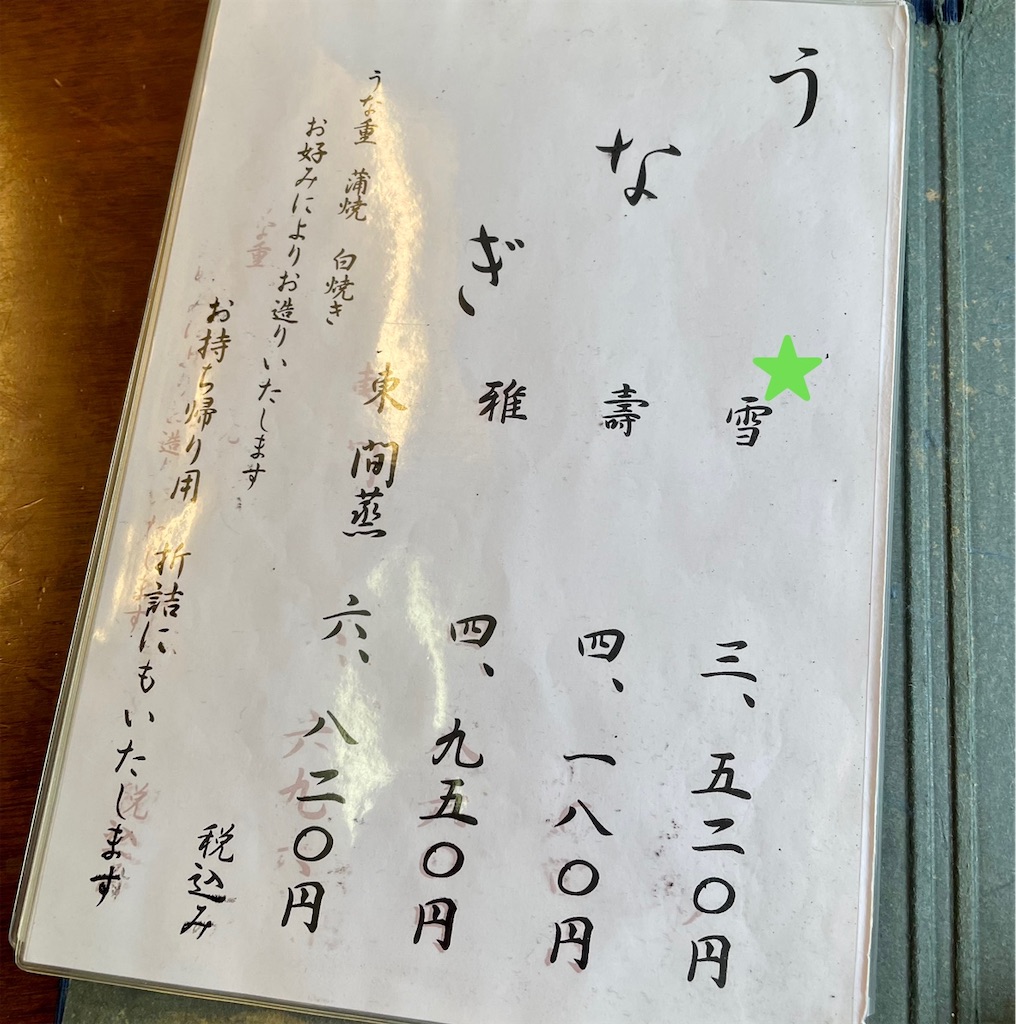 うなぎ
雪 三、五二〇円
壽 四、一八〇円
雅 四、九五〇円
東 間蒸 六、八二〇円
うな重 蒲焼 白焼き
お好みによりお造りいたします
お持ち帰り用 折詰にもいたします
税込み